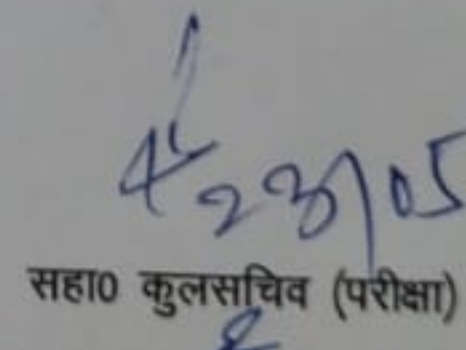 23/05
सहा0 कुलसचिव (परीक्षा)